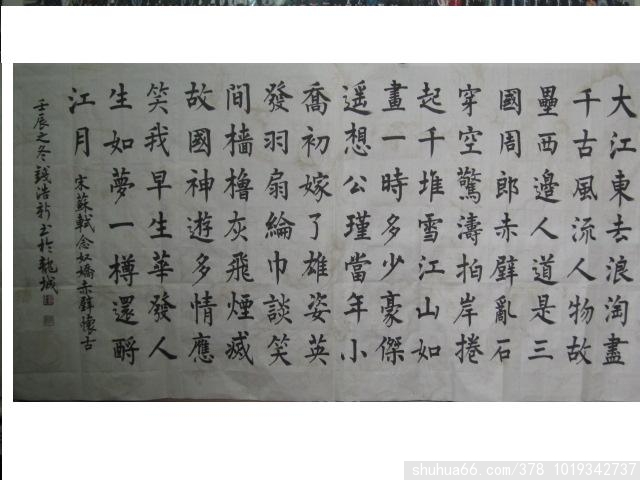 大江東去浪淘盡
千古風流人物故
壘西邊人道是三
國周郎赤壁亂石
穿空驚濤拍岸捲
起千堆雪江山如
畫一時多少豪傑
遥想公瑾當年小
喬初嫁了雄姿英
發羽扇綸巾談笑
間檣櫓灰飛煙滅
故國神遊多情應
笑我早生華發人
生如夢一樽還酹
江月
宋蘇軾念奴嬌赤壁懷古
壬辰之冬錢浩於龍城
shuhua66.com/378 1019342737